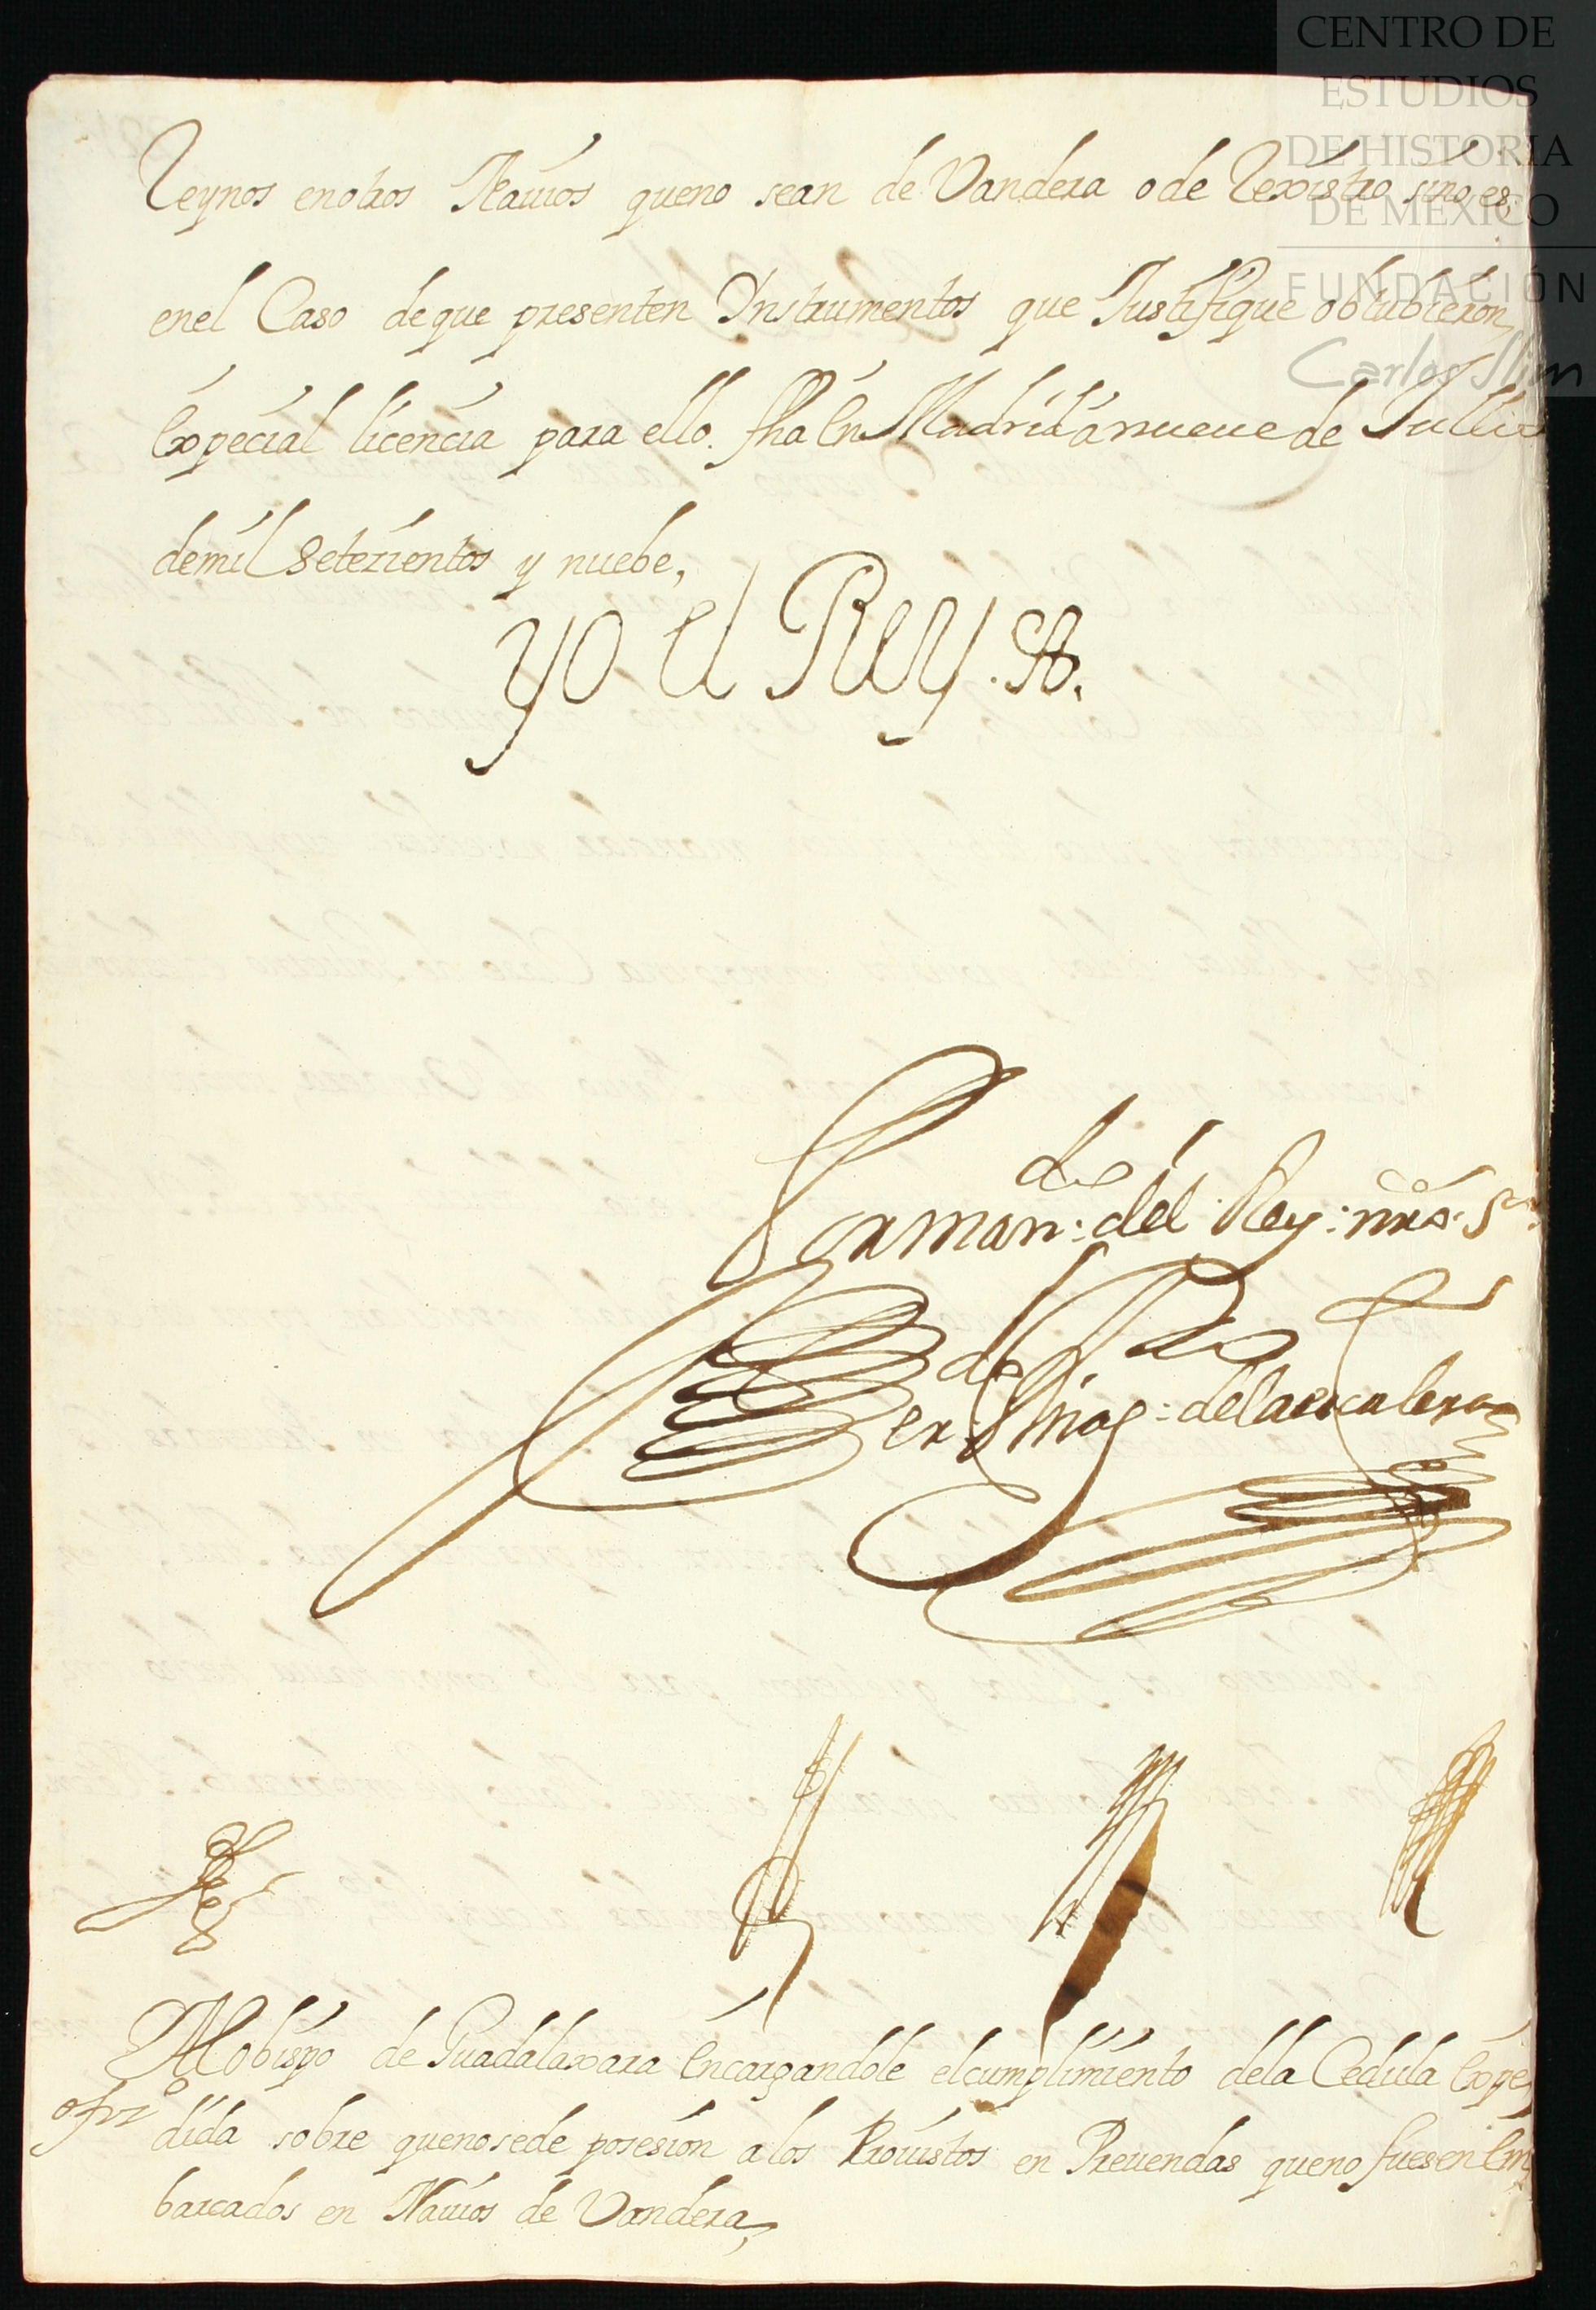 CENTRO DE
ESTUDIOS
DE HISTORIA
DE MÉXICO
FUNDACIÓN
Carlos Slim
Reynos en otros Nauios que no sean de Vandera o de Rexistro sino es,
en el Caso de que presenten Instrumentos que Justifique obtubieron
Expecial licencia para ello. fha En Madrid a nueue de Jullio
de mil Setezientos y nuebe,
Yo el Rey.
Por man.do del Rey: nro. S.r
de la escalera
Al obispo de Guadalaxara Encargandole el cumplimiento de la Cedula Expe
ofiz.o
dida sobre que no se de posesion a los Prouistos en Preuendas que no fuesen Em
barcados en Nauios de Vandera,